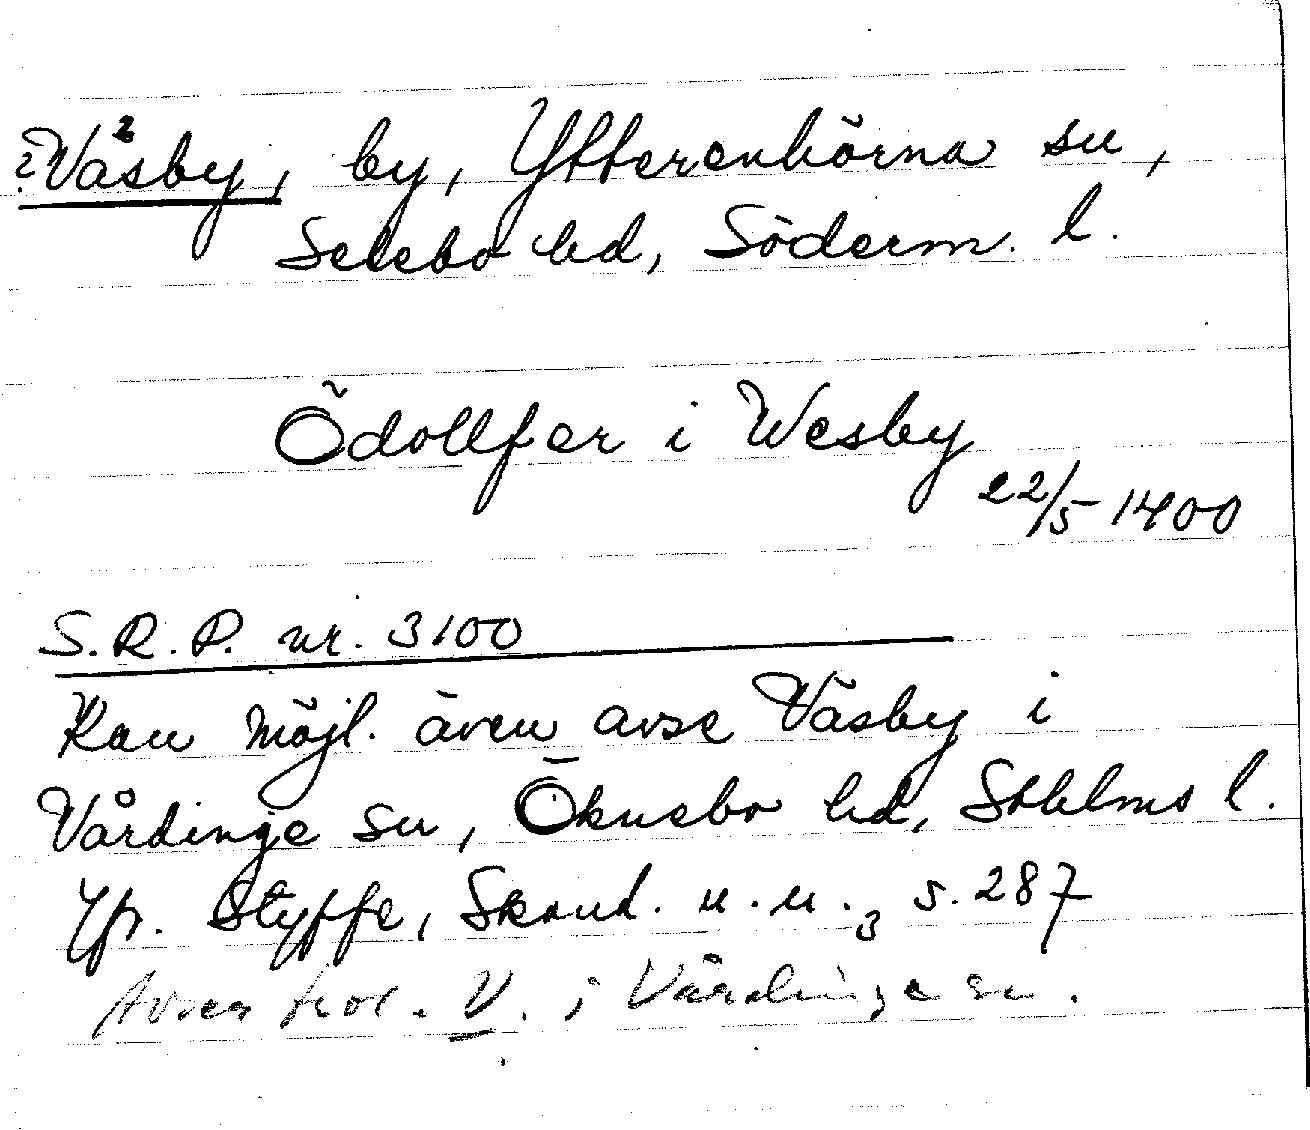 ?Väsby, by, Ytterenhörna sn,
Selebo hd, Söderm. l.
Ödollfer i Wesby
22/5 1400
S.R.P. nr. 3100
Kan möjl. även avse Väsby i
Vårdinge sn, Öknebo hd, Sthlms l.
Jfr. Styffe, Skand. u. u.3 s. 287
Avser trol. V. i Vårdinge sn.